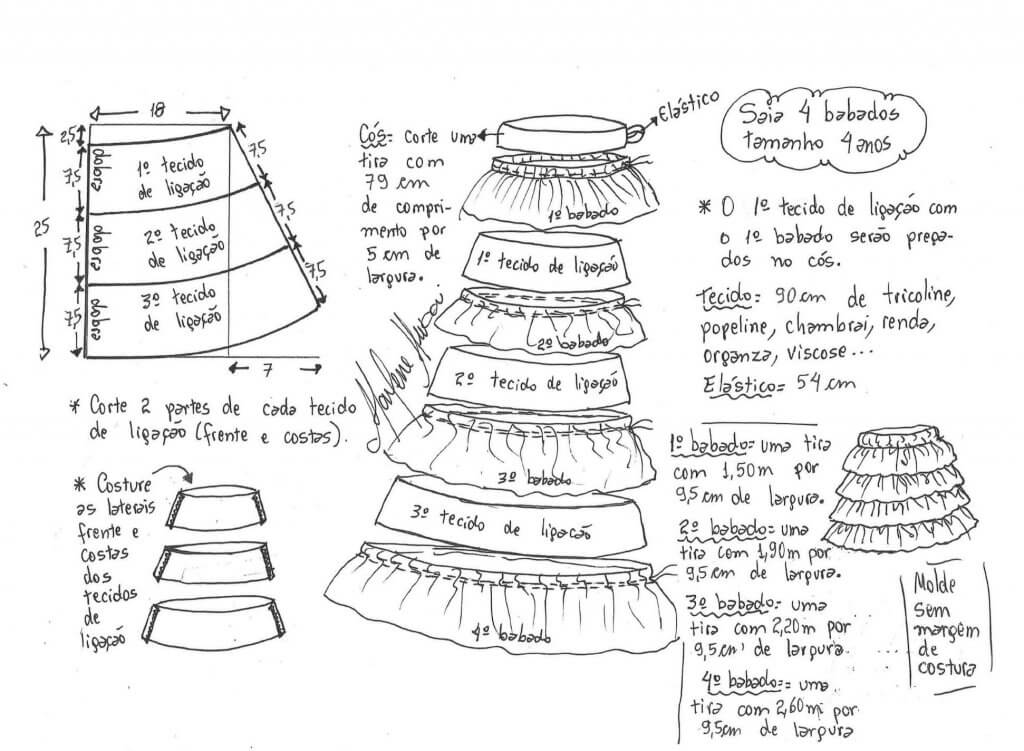 18
2,5
7,5
7,5
7,5
25
dobra
dobra
dobra
1º tecido
de ligação
2º tecido
de ligação
3º tecido
de ligação
7,5
7,5
7,5
7
* Corte 2 partes de cada tecido
de ligação (frente e costas).
* Costure
as laterais
frente e
costas
dos
tecidos
de
ligação
Cós= corte uma
tira com
79 cm
de compri-
mento por
5 cm de
largura.
Elástico
1º babado
1º tecido de ligação
2º babado
2º tecido de ligação
3º babado
3º tecido de ligação
4º babado
Saia 4 babados
tamanho 4 anos
* O 1º tecido de ligação com
o 1º babado serão prega-
dos no cós.
Tecido= 90 cm de tricoline,
popeline, chambrai, renda,
organza, viscose...
Elástico= 54 cm
1º babado= uma tira
com 1,50m por
9,5 cm de largura.
2º babado= uma
tira com 1,90m por
9,5 cm de largura.
3º babado= uma
tira com 2,20m por
9,5cm de largura.
4º babado= uma
tira com 2,60m por
9,5cm de largura
Molde
sem
margem
de
costura